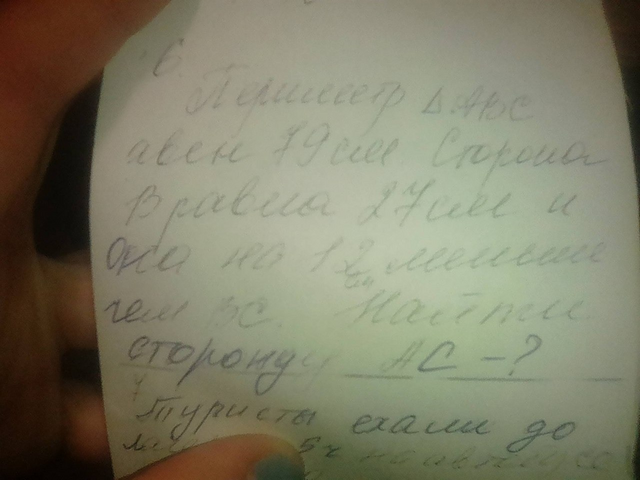 6.
Периметр Δ ABC
авен 79 см Сторона
B равна 27 см и
она на 12 см меньше
чем BC. Найти
сторону AC - ?
7
Туристы ехали до
5 ч